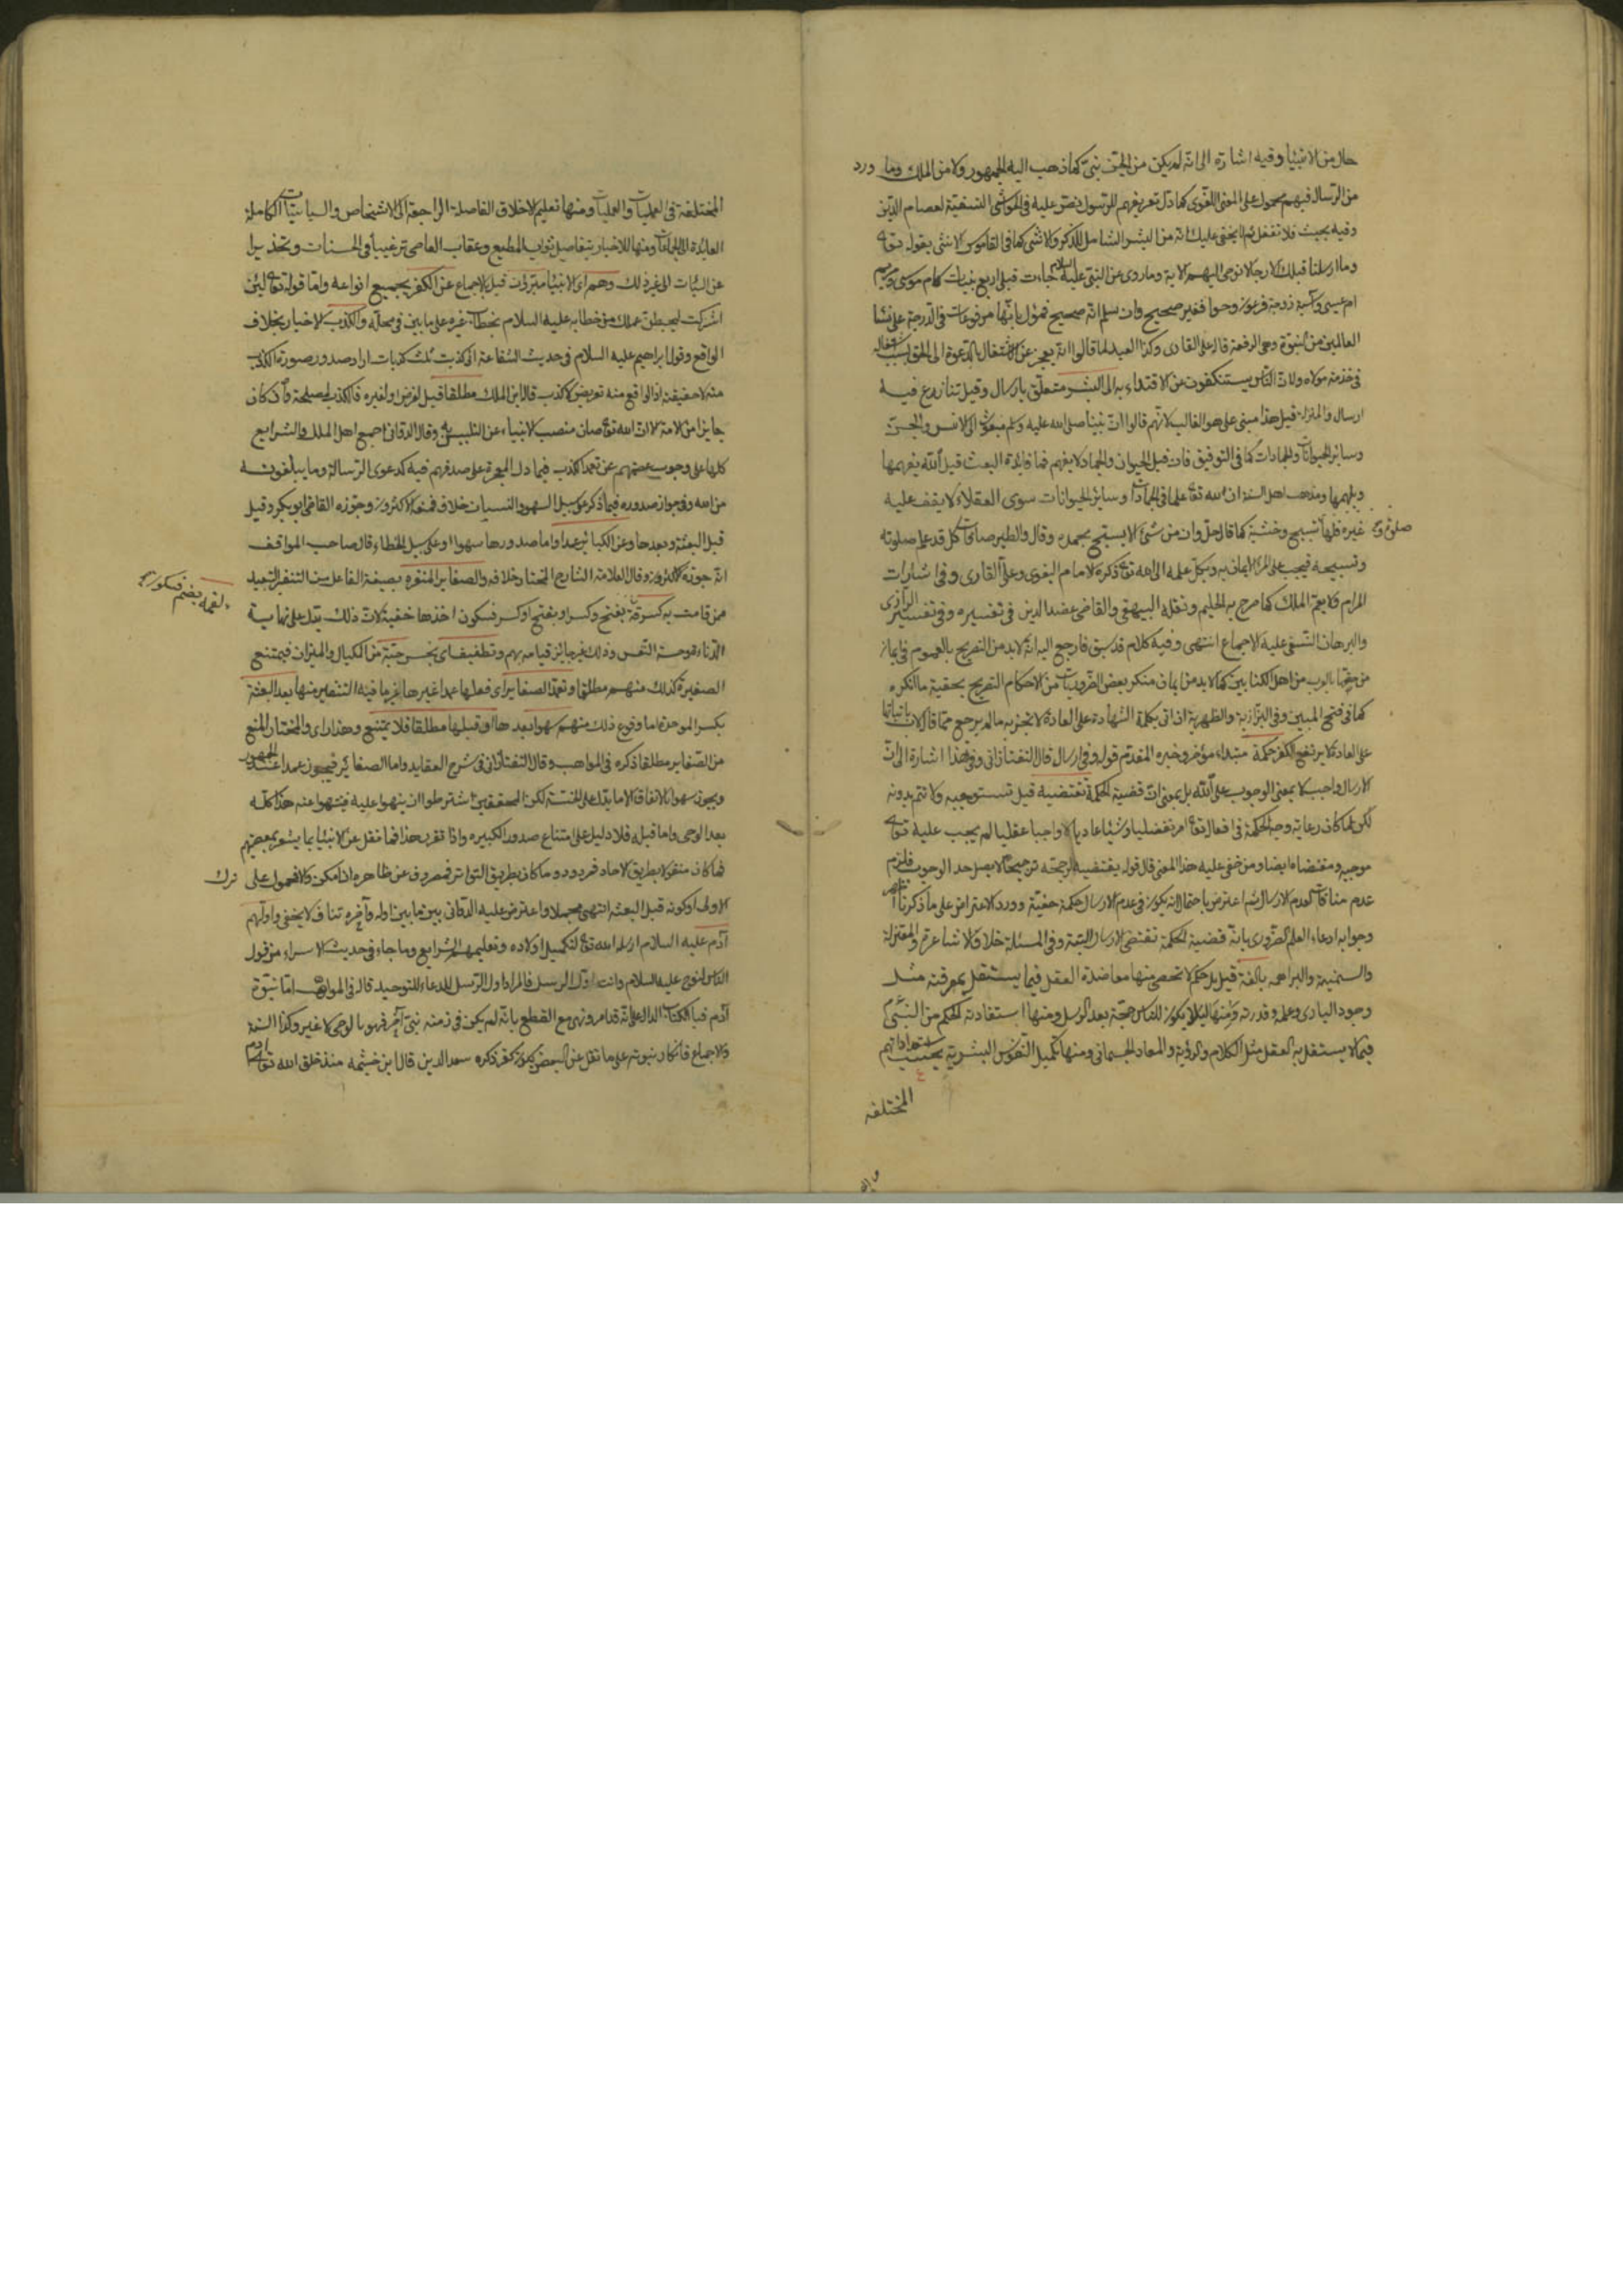 حال من الانبيا وفيه اشارة الى انه لم يكن من الجن نبى كما ذهب اليه الجمهور ولا من الملك وما ورد
من الرسال فيهم محمول على المعنى اللغوى كما دل تعريفهم للرسول ونص عليه فى الحواشى النسفية لعصام الدين
وفيه بحيث فلا تغفل ثم لا يخفى عليك انه من البشر الشامل للذكر والانثى كما فى القاموس لا نثى بقوله تع
وما ارسلنا قبلك الا رجالا نوحى اليهم الاية وما روى عن النبى عليه السلام جاءت قبل اربع نبيات كام موسى ومريم
ام عيسى وآسية زوجة فرعون وحوا فغير صحيح وان سلم انه صحيح فمؤل بانها مرفوعات فى الدرجة على نسا
العالمين من النبوة وهى الرفعة قاله على القارى وكذا العبيد لما قالوا انه يعجز عن الاشتغال بالدعوة الى الحق بسبب اشتغاله
فى خدمة مولاه ولان الناس يستنكفون من الاقتداء به الى البشر متعلق بارسال وقيل تنازع فيه
ارسال والمنزلة قيل هذا مبنى على هو الغالب لانهم قالوا ان نبينا صلى الله عليه وسلم مبعوث الى الانس والجن
وسائر الحيوانات والجمادات كما فى التوفيق فان قيل الحيوان والجماد لا يفهم فما فائدة البعث قيل الله يفهمها
ويلهمها ومذهب اهل السنة ان لله تع علما فى الجمادات وسائر الحيوانات سوى العقلاء لا يقف عليه
غيره فلها تسبيح وخشية كما قال جل وان من شئ الا يسبح بحمده وقال والطير صافات كل قد علم صلوته
وتسبيحه فيجب على المرء الايمان به ويكل علمه الى الله تع ذكره الامام البغوى وعلى القارى وفى اشارات
المرام فلا يعم الملك كما صرح به الحليم ونقله البيهقى والقاضى عضد الدين فى تفسيره وفى تفسير الرازى
والبرهان النسفى عليه الاجماع انتهى وفيه كلام قد سبق فارجع اليه انه لا بد من التصريح بالعموم فى ايمان
من اهل الكتابين كما لا بد من ايمان منكر بعض الضروريات من الاحكام التصريح بحقية ما انكره
كما فى فتح المبين وفى البزازية والظهيرية اذا اتى بكلمة الشهادة على العادة لا تجزيه ما لم يرجع مما قال لان باتيانها
على العادة لا يرتفع الكفر حكمة مبتداء مؤخر وخبره المقدم قوله وفى ارسال قال التفتازانى وفى هذا اشارة الى ان
الارسال واجب لا بمعنى الوجوب على الله بل بمعنى ان قضية الحكمة تقتضيه قيل تستوجبه ولا تتم بدونه
لكن لما كان رعاية وجه الحكمة فى افعاله تع امر تفضليا وشيئا عاديا لا واجبا عقليا لم يجب عليه تع
موجبه ومقتضاه ايضا ومن خفى عليه هذا المعنى قال قوله يقتضيه ترجيحا لا يصل حد الوجوب فلزم
عدم منافات لعدم الارسال ثم اعترض باحتمال انه يكون فى عدم الارسال حكمة خفية وورد الاعتراض على ما ذكرنا
وجوابه ادعاء العلم الضرورى بانه قضية الحكمة تقتضى الارسال البتة وفى المسئلة خلاف الاشاعرة والمعتزلة
والسمنية والبراهمة بالغة قيل بل حكم لا تحصى منها معاضدة العقل فيما يستقل بمعرفته مثل
وجود البارى وعلمه وقدرته ومنها لئلا يكون للناس حجة بعد الرسل ومنها استفادة الحكم من النبى
فيما لا يستقل به العقل مثل الكلام والرؤية والمعاد الجسمانى ومنها تكميل النفوس البشرية بحسب استعداداتهم
المختلفه
المختلفة فى العمليات والعلميات ومنها تعليم الاخلاق الفاضلة الراجعة الى الاشخاص والسياسات الكاملة
العائدة الى الجماعات ومنها الاخبار بتفاصيل ثواب المطيع وعقاب العاصى ترغيبا فى الحسنات وتحذيرا
عن السيئات الى غير ذلك وهم اى الانبيا مبرؤن قيل بالاجماع عن الكفر بجميع انواعه واما قوله تع لئن
اشركت ليحبطن عملك فمن خطابه عليه السلام بخطاب غيره على ما بين فى محله والكذب الاخبار بخلاف
الواقع وقول ابراهيم عليه السلام فى حديث الشفاعة انى كذبت ثلث كذبات اراد صدور صورة الكذب
منه لا حقيقته اذ الواقع منه تعريض لا كذب قال ابن الملك مطلقا قيل لغرض او لغيره فالكذب لمصلحة وان كان
جايزا من الامة الا ان الله تع صان منصب الانبياء عن التلبيس به وقال الدوانى اجمع اهل الملل والشرايع
كلها على وجوب عصمتهم عن تعمد الكذب فيما دل المعجزة على صدقهم فيه كدعوى الرسالة وما يبلغونه
من الله وفى جواز صدوره فيما ذكر على سبيل السهو والنسيان خلاف فمنعه الاكثرون وجوزه القاضى ابو بكر وقيل
قبل البعثة وبعدها وعن الكبائر عمدا واما صدورها سهوا او على سبيل الخطاء قال صاحب المواقف
انه جوزه الاكثرون وقال العلامة الشارح المختار خلافه والصغاير المنفرة بصيغة الفاعل من التنفير التبعيد
ممن قامت به كسرقة بفتح وكسر او بفتح او كسر فسكون اخذها خفية لان ذلك يدل على نهاية
الدناءة وخسة النفس وذلك غير جايز قيامه بهم وتطفيف اى بخس حبة من الكيال والميزان فيمتنع
الصغيرة كذلك منهم مطلقا وتعمد الصغاير اى فعلها عمدا غيرها غير ما فيه التنفير منها بعد البعثة
بكسر الموحدة اما وقوع ذلك منهم سهوا بعدها او قبلها مطلقا فلا يمتنع وهذا راى والمختار المنع
من الصغاير مطلقا ذكره فى المواهب وقال التفتازانى فى شرح العقايد واما الصغائر فيجوز عمدا عند الجمهور
ويجوز سهوا بالاتفاق الا ما يدل على الخسة لكن المحققين اشترطوا ان ينبهوا عليه فينتهوا عنه هذا كله
بعد الوحى واما قبله فلا دليل على امتناع صدور الكبيرة واذا تقرر هذا فما نقل عن الانبيا بما يشعر بمعصيتهم
فما كان منقولا بطريق الاحاد فمردود وما كان بطريق التواتر فمصروف عن ظاهره ان امكن والا فمحمول على ترك
الاولى او كونه قبل البعثة انتهى مجملا واعترض عليه الدوانى بين ما بين اوله وآخره تناف لا يخفى واولهم
آدم عليه السلام ارسله الله تع لتكميل اولاده وتعليمهم الشرايع وما جاء فى حديث الاسراء من قول
الناس لنوح عليه السلام وانت اول الرسل فالمراد اول الرسل للدعاء للتوحيد قال فى المواهب اما نبوة
آدم فبا الكتاب الدال على انه قد امر ونهى مع القطع بانه لم يكن فى زمنه نبى آخر فهو بالوحى لا غير وكذا السنة
والاجماع فانكار نبوته على ما نقل عن البعض يكون كفر ذكره سعد الدين قال ابن خيثمه منذ خلق الله تع آدم